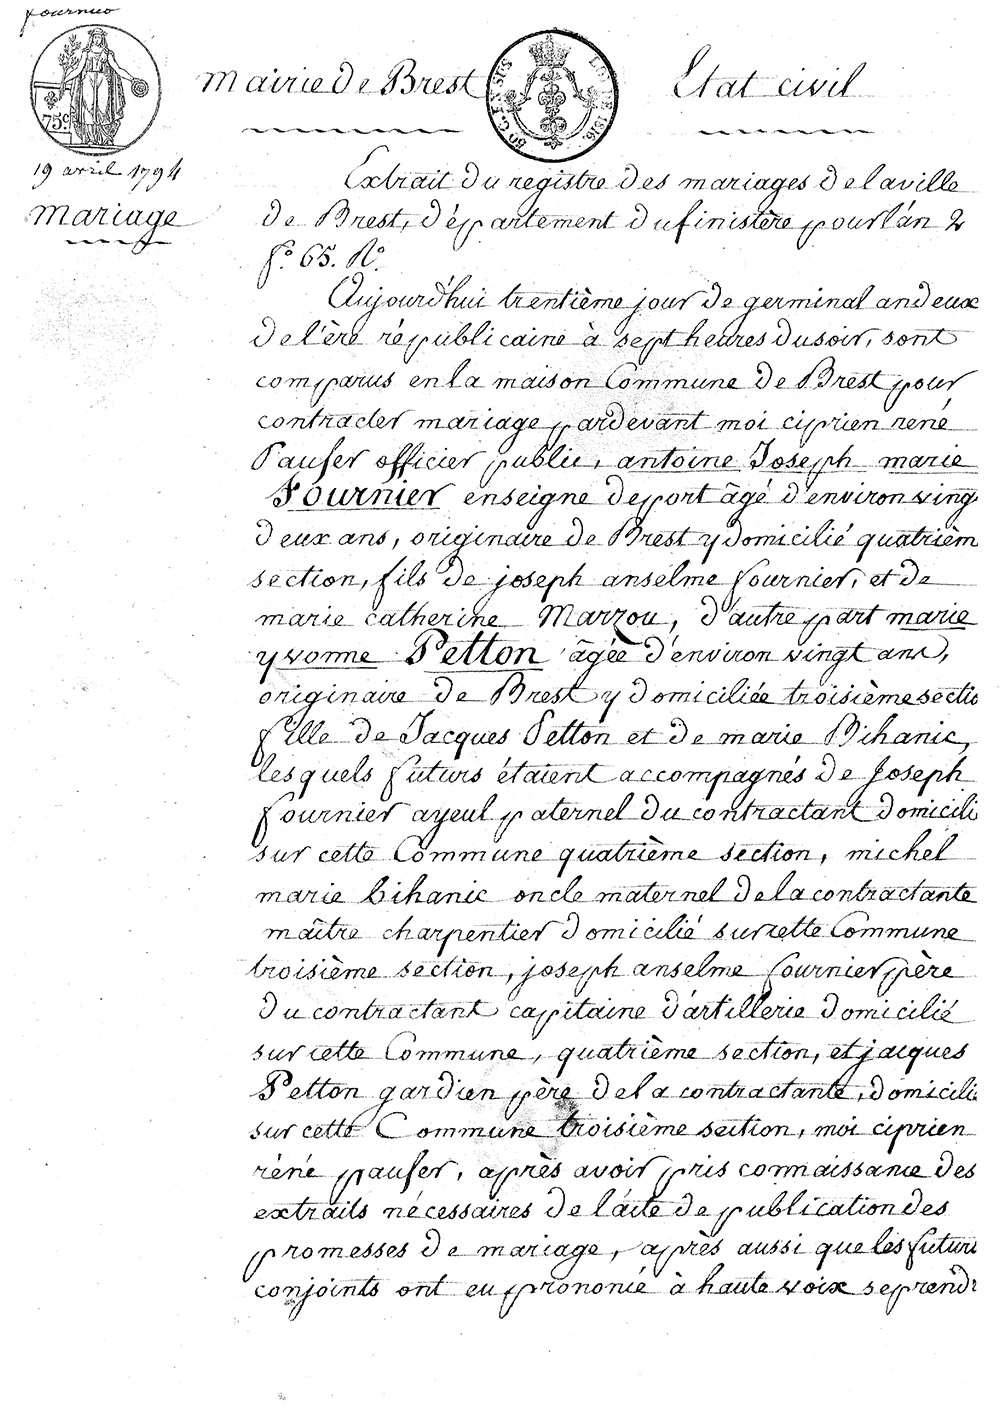 fournier
Mairie de Brest
Etat civil
75c
50 C. EN SUS
LOI DE 1816.
19 avril 1794
Mariage
Extrait du registre des mariages de la ville
de Brest, département du finistère pour l'an 2
fo. 65. Ro.
Aujourd'hui trentième jour de germinal an deux
de l'ère républicaine à sept heures du soir, sont
comparus en la maison Commune de Brest pour
contracter mariage pardevant moi ciprien rené
Paufer officier public, antoine Joseph marie
Fournier enseigne de port âgé d'environ ving
deux ans, originaire de Brest y domicilié quatrièm
section, fils de joseph anselme fournier, et de
marie catherine Marzou, d'autre part marie
yvonne Petton âgée d'environ vingt ans,
originaire de Brest y domiciliée troisième sectio
fille de Jacques Petton et de marie Bihanic,
lesquels futurs étaient accompagnés de Joseph
fournier ayeul paternel du contractant domicili
sur cette Commune quatrième section, michel
marie bihanic oncle maternel de la contractante
maître charpentier domicilié sur cette Commune
troisième section, joseph anselme fournier père
du contractant capitaine d'artillerie domicilié
sur cette Commune, quatrième section, et jacques
Petton gardien père de la contractante, domicili
sur cette Commune troisième section, moi ciprien
réné paufer, après avoir pris connaissance des
extraits nécessaires de l'acte de publication des
promesses de mariage, après aussi que les futurs
conjoints ont eu prononcé à haute voix se prendr